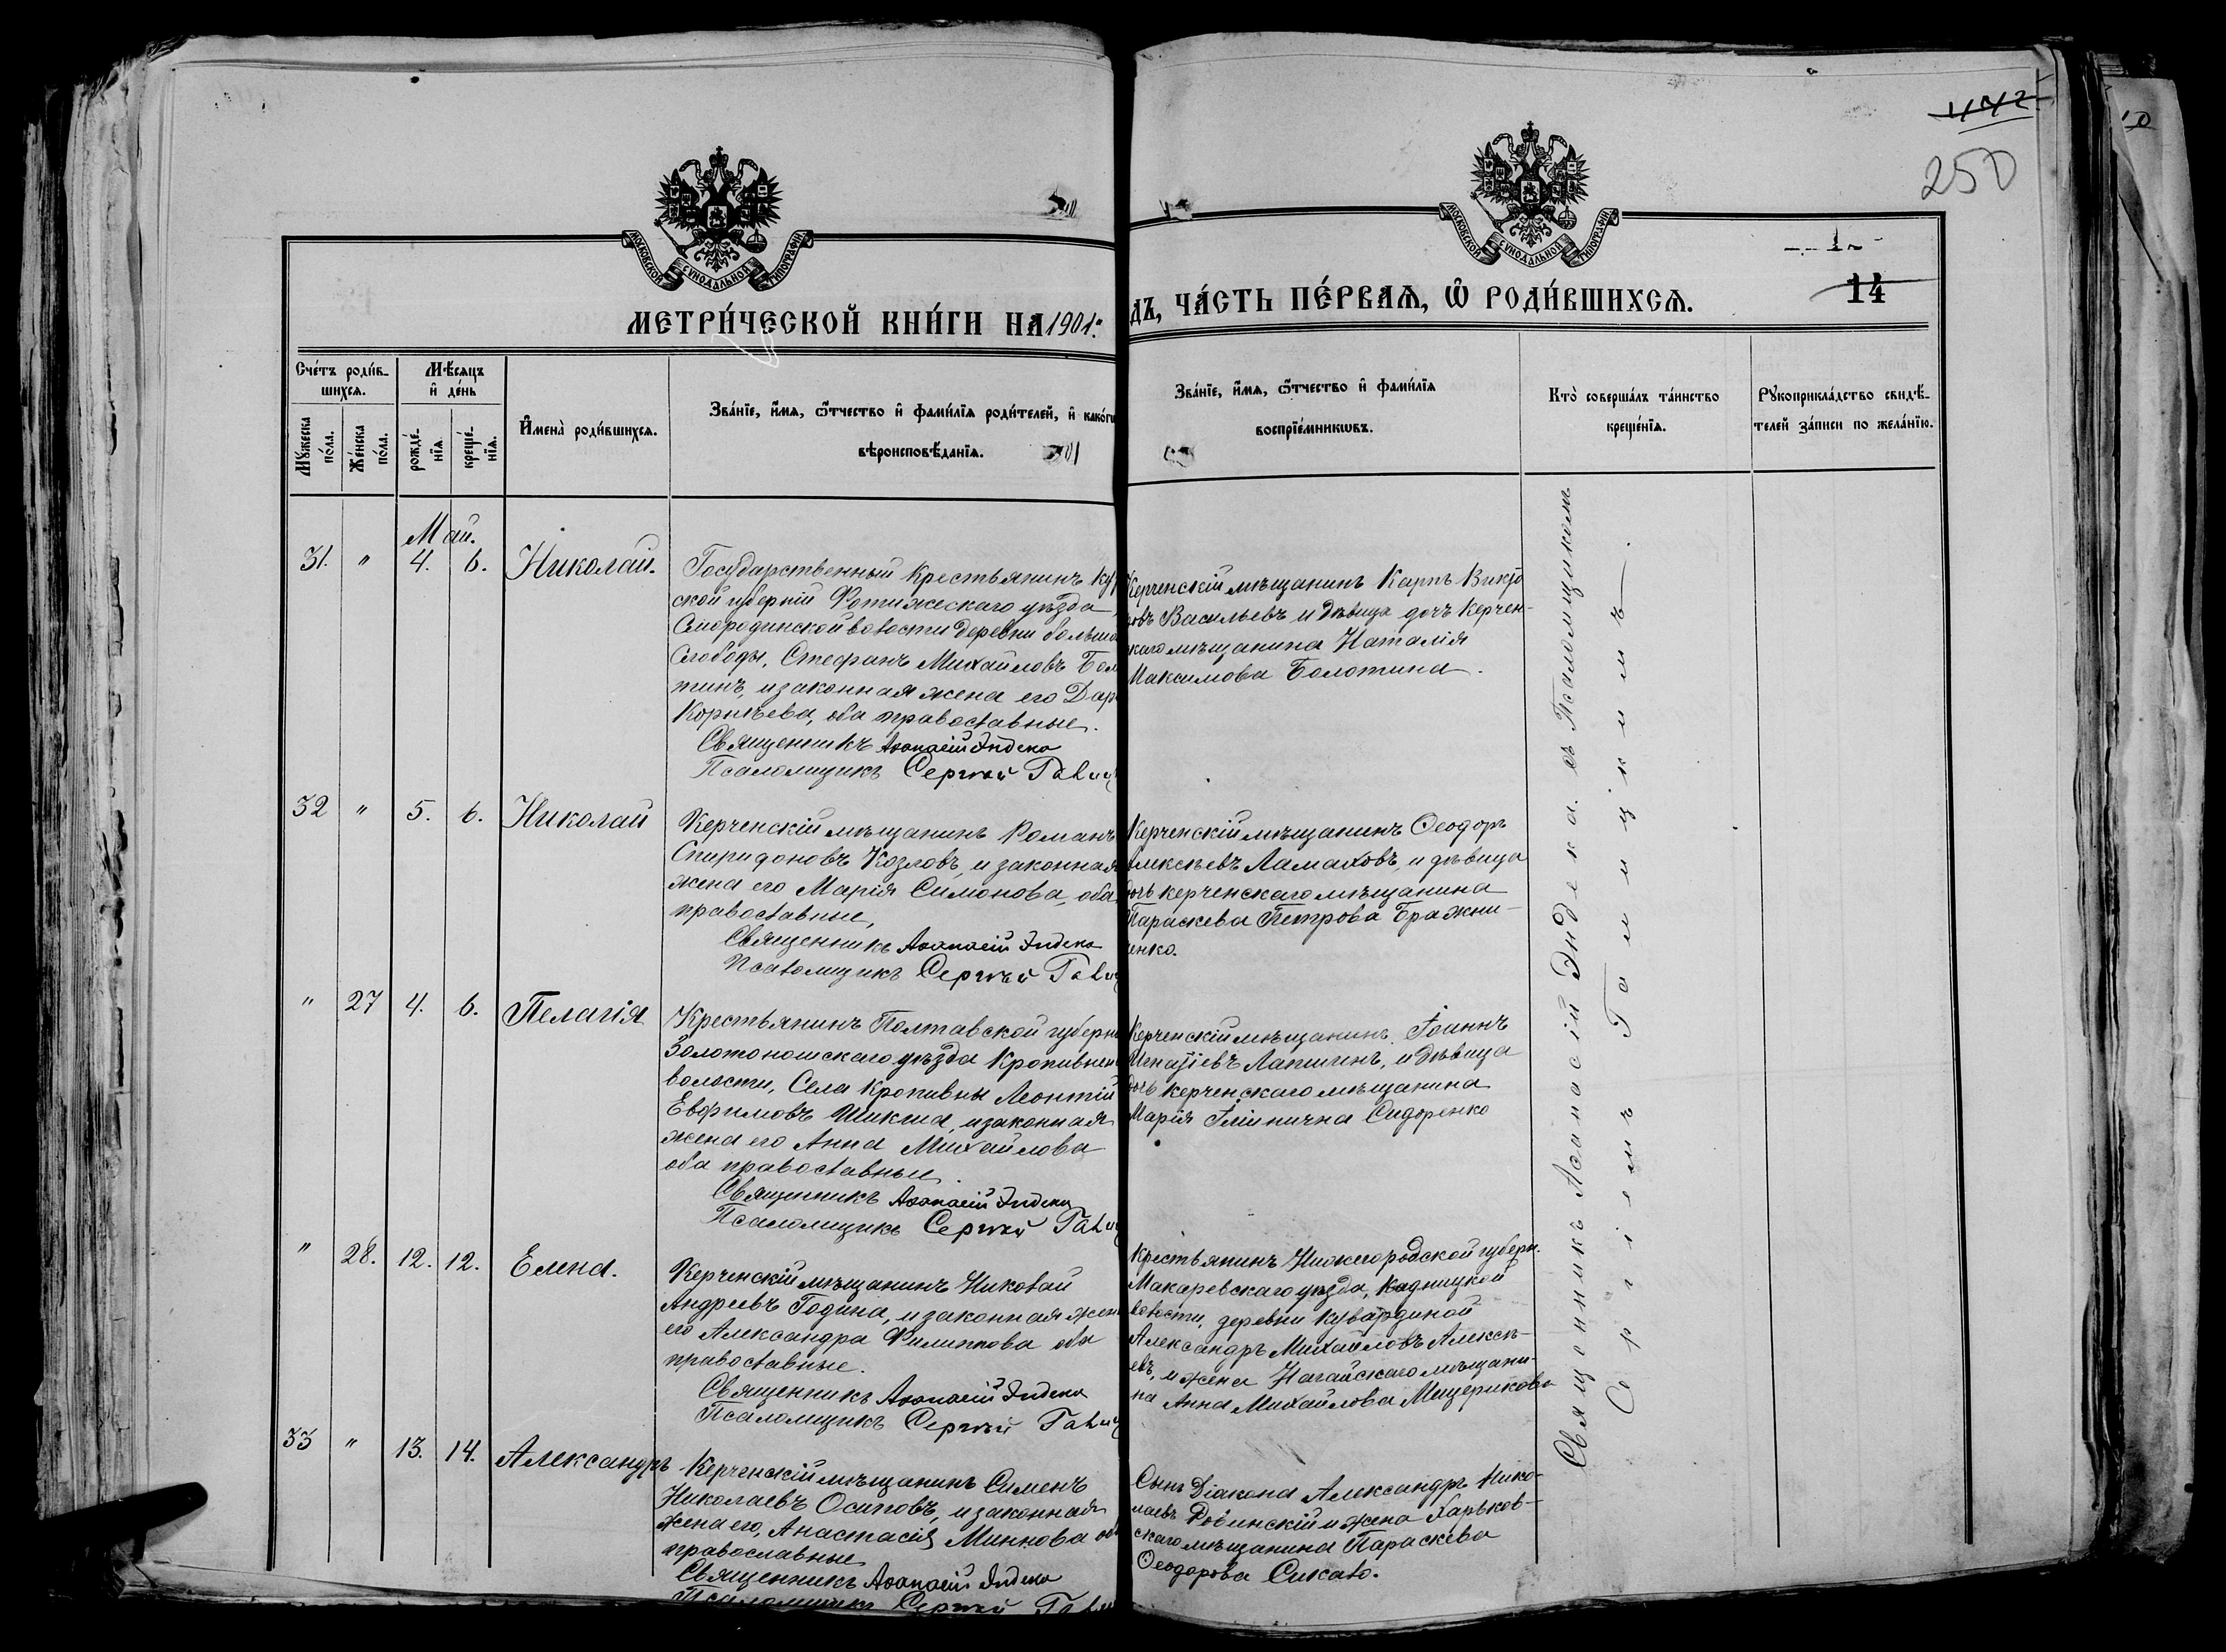 442
250
МОСКОВСКОЙ СѴНОДАЛЬНОЙ ТИПОГРАФІИ
МОСКОВСКОЙ СѴНОДАЛЬНОЙ ТИПОГРАФІИ
14
МЕТРИ́ЧЕСКОЙ КНИ́ГИ НА 1901
ДЪ, ЧА́СТЬ ПЕ́РВАѦ, Ѽ РОДИ́ВШИХСѦ.
Сче́тъ роди́в-
шихсѧ.
Мѣ́сѧцъ
и҆ де́нь
Мꙋ́жеска
по́ла.
Же́нска
по́ла.
рожде́-
нїѧ.
креще́-
нїѧ.
И҆мена̀ роди́вшихсѧ.
Зва́нїе, и҆́мѧ, ѻ҆́тчество и҆ фами́лїѧ роди́телей, и҆ како́гѡ
вѣроисповѣ́данїѧ.
Зва́нїе, и҆́мѧ, ѻ҆́тчество и҆ фами́лїѧ
воспрїе́мникѡвъ.
Кто̀ соверша́лъ та́инство
креще́нїѧ.
Рꙋкоприкла́дство свидѣ́-
телей за́писи по жела́нїю.
Май.
31. " 4. 6. Николай.
Государственный Крестьянинъ Кур
ской губерніи Фотижескаго уѣзда
Смородинской волости деревни больша
Слободы, Стефанъ Михайловъ Боло
тинъ, и законная жена его Дар
Корнѣева, оба православные.
Священникъ Аѳанасій Индеко
Псаломщикъ Сергѣй
Керченскій мѣщанинъ Карпъ Викто
ровъ Васильевъ и дѣвица дочь Керчен-
скаго мѣщанина Наталія
Максимова Болотина.
32 " 5. 6. Николай
Керченскій мѣщанинъ Романъ
Спиридоновъ Козловъ, и законная
жена его Марія Симонова, оба
православные,
Священникъ Аѳанасій Индеко
Псаломщикъ Сергѣй
Керченскій мѣщанинъ Ѳеодоръ
Алексѣевъ Ламаховъ, и дѣвица
дочь керченскаго мѣщанина
Параскева Петрова Бражни-
ченко.
" 27 4. 6. Пелагія
Крестьянинъ Полтавской губерн
Золотоношскаго уѣзда Кропивнен
волости, Села Кропивны Леонтій
Евфимовъ Шикша, и законная
жена его Анна Михайлова
оба православные.
Священникъ Аѳанасій Индеко
Псаломщикъ Сергѣй
Керченскій мѣщанинъ Іоаннъ
Игнатіевъ Лапшинъ, и дѣвица
дочь керченскаго мѣщанина
Марія Сидоренко
" 28. 12. 12. Елена.
Керченскій мѣщанинъ Николай
Андреевъ Година, и законная жен
его Александра Филиппова оба
православные.
Священникъ Аѳанасій Индеко
Псаломщикъ Сергѣй
Крестьянинъ Нижегородской губерн.
Макаревскаго уѣзда, Кадницкой
волости, деревни Кувардиной
Александръ Михайловъ Алексѣ-
евъ, и жена Нагайскаго мѣщани-
на Анна Михайлова Мищерикова
33 " 13. 14. Александръ
Керченскій мѣщанинъ Сименъ
Николаевъ Осиповъ, и законная
жена его, Анастасія Миннова об
православные
Священникъ Аѳанасій Индеко
Псаломщикъ Сергѣй
Сынъ Діакона Александръ Нико-
лаевъ Ровинскій и жена Харьков-
скаго мѣщанина Параскева
Ѳеодорова Сикало.
Священникъ Аѳанасій Индеко. съ Псаломщикомъ
Сергіемъ